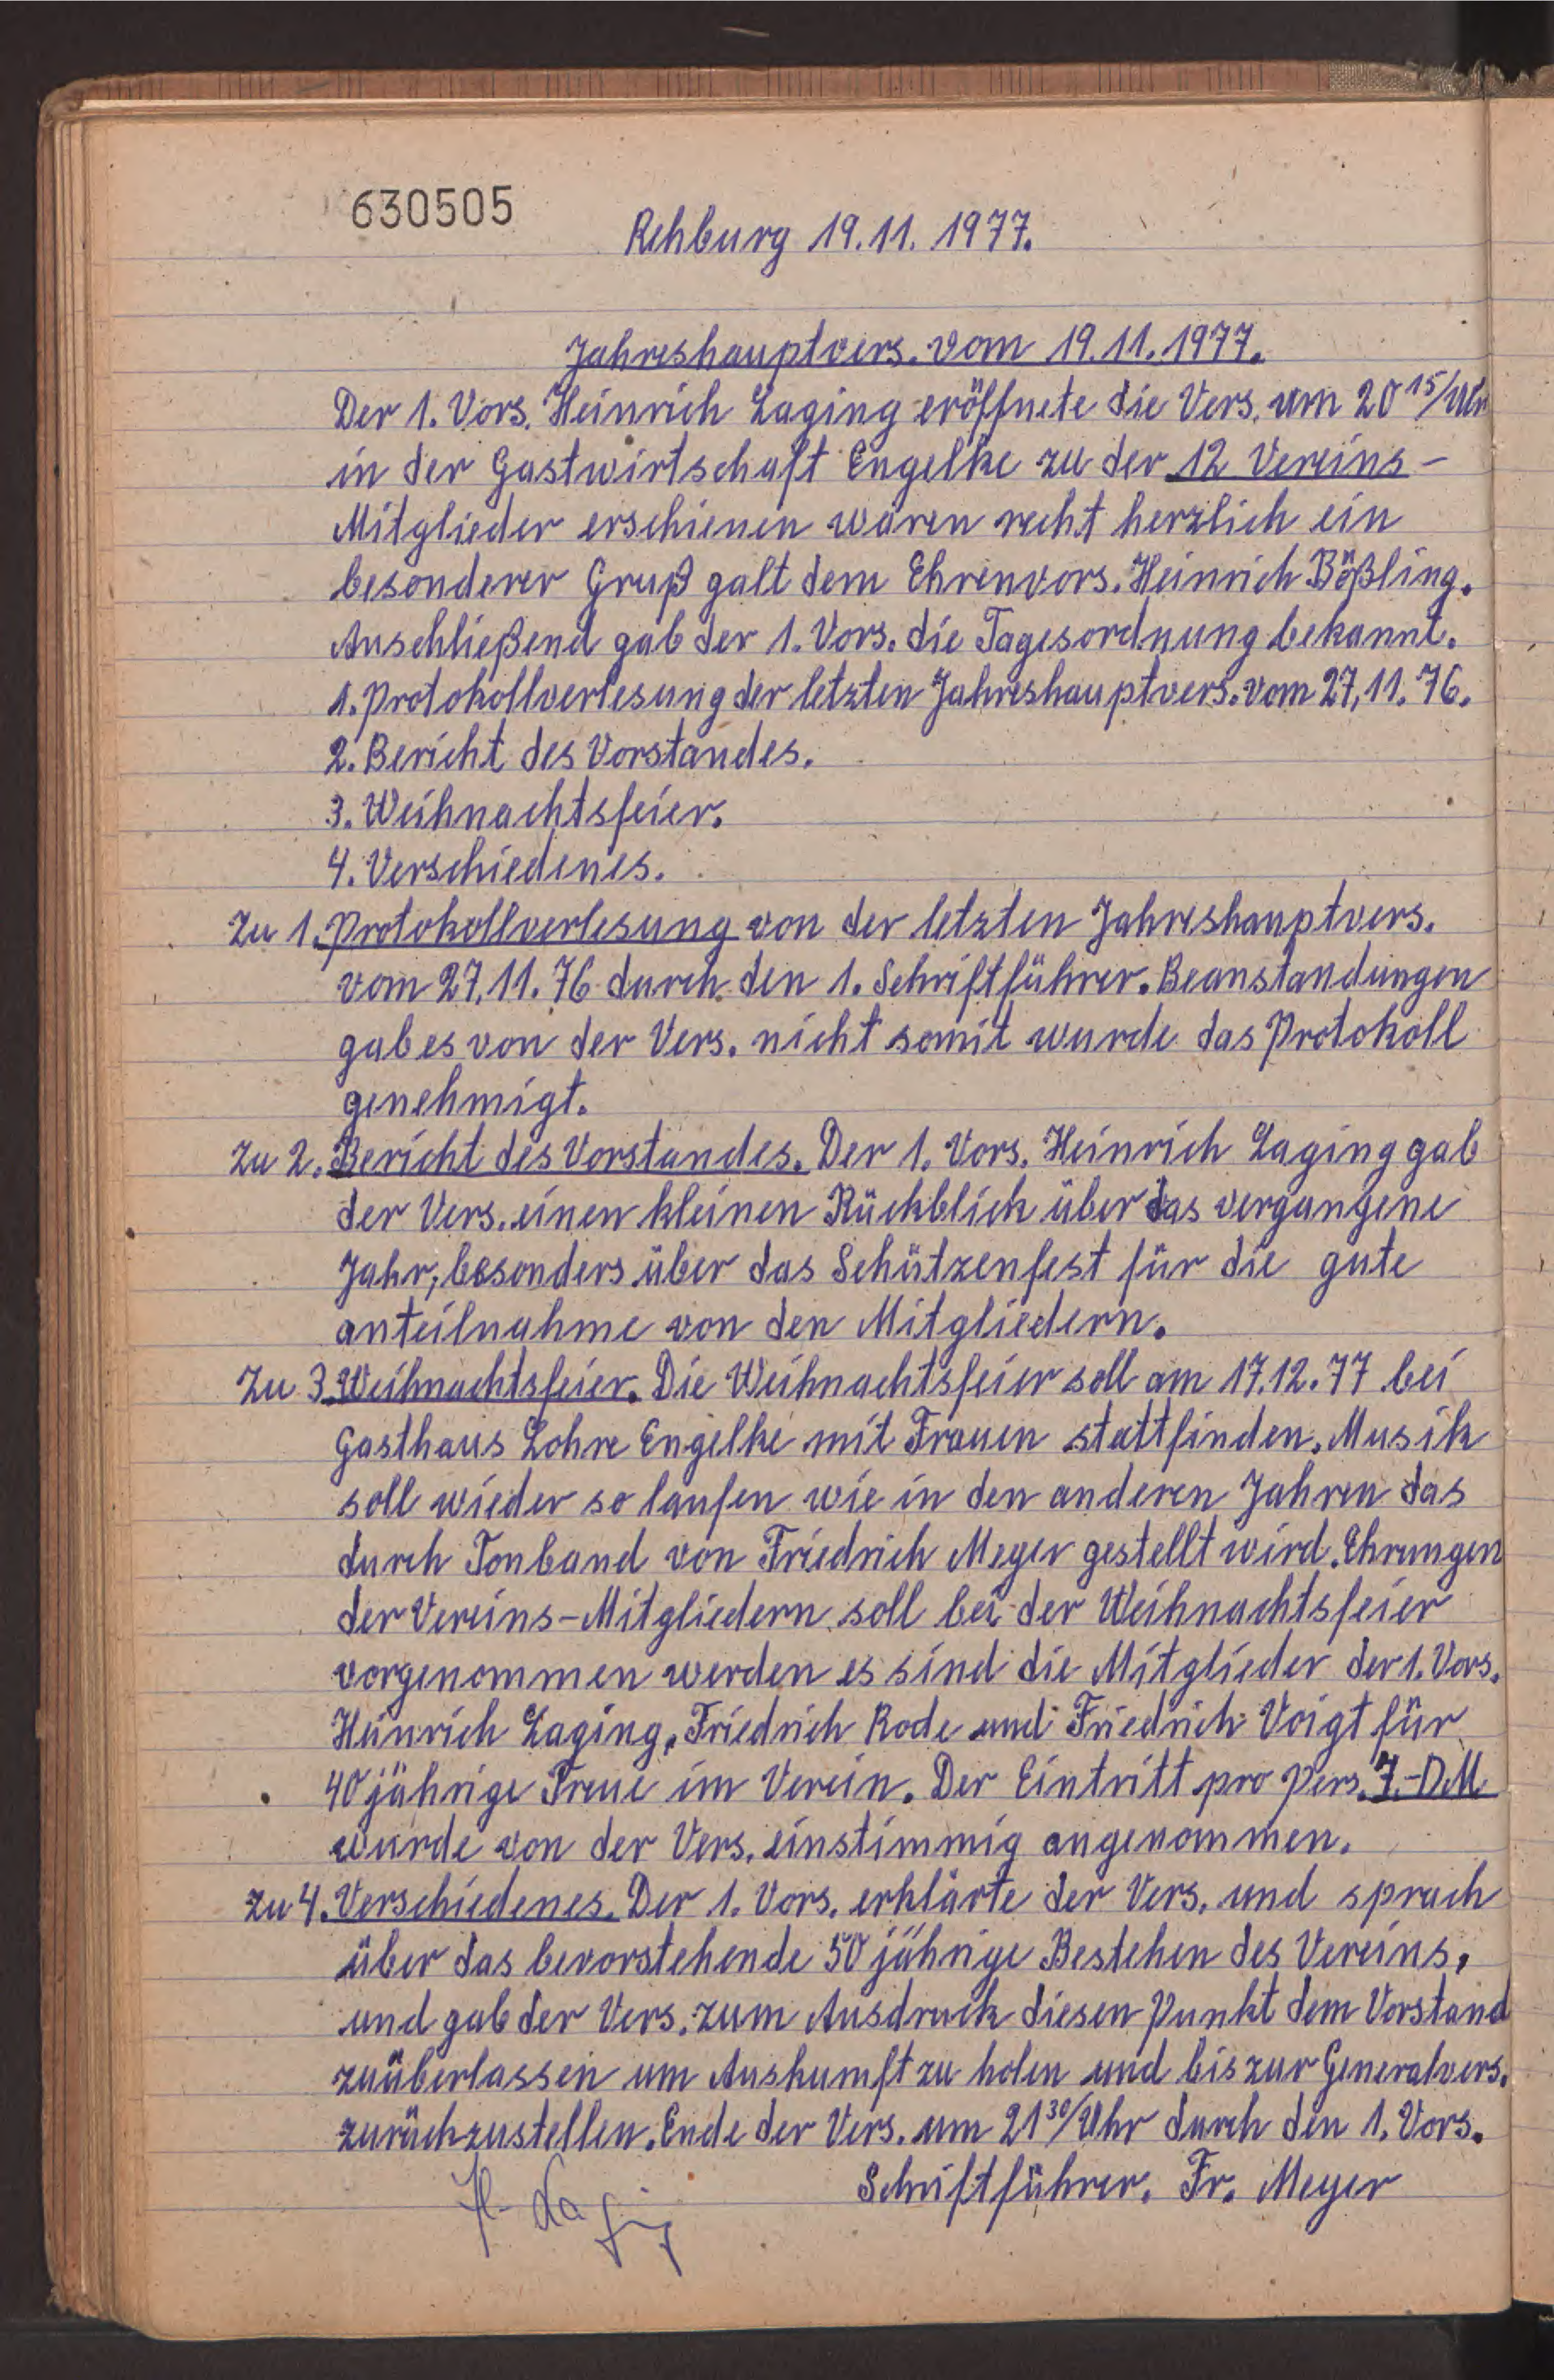 630505
Rehburg 19.11.1977.
Jahreshauptvers. vom 19.11.1977.
Der 1. Vors. Heinrich Laging eröffnete die Vers. um 20 15/Uhr
in der Gastwirtschaft Engelke zu der 12 Vereins-
Mitglieder erschienen waren recht herzlich ein
besonderer Gruß galt dem Ehrenvors. Heinrich Bößling.
Anschließend gab der 1. Vors. die Tagesordnung bekannt.
1. Protokollverlesung der letzten Jahreshauptvers. vom 27.11.76.
2. Bericht des Vorstandes.
3. Weihnachtsfeier.
4. Verschiedenes.
Zu 1. Protokollverlesung von der letzten Jahreshauptvers.
vom 27.11.76 durch den 1. Schriftführer. Beanstandungen
gab es von der Vers. nicht somit wurde das Protokoll
genehmigt.
Zu 2. Bericht des Vorstandes. Der 1. Vors. Heinrich Laging gab
der Vers. einen kleinen Rückblick über das vergangene
Jahr, besonders über das Schützenfest für die gute
anteilnahme von den Mitgliedern.
Zu 3. Weihnachtsfeier. Die Weihnachtsfeier soll am 17.12.77 bei
Gasthaus Lohre Engelke mit Frauen stattfinden. Musik
soll wieder so laufen wie in den anderen Jahren das
durch Tonband von Friedrich Meyer gestellt wird. Ehrungen
der Vereins-Mitgliedern soll bei der Weihnachtsfeier
vorgenommen werden es sind die Mitglieder der 1. Vors.
Heinrich Laging, Friedrich Rode und Friedrich Voigt für
40 jährige Treue im Verein. Der Eintritt pro Pers. 7.-DM
wurde von der Vers. einstimmig angenommen.
Zu 4. Verschiedenes. Der 1. Vors. erklärte der Vers. und sprach
über das bevorstehende 50 jährige Bestehen des Vereins,
und gab der Vers. zum Ausdruck diesen Punkt dem Vorstand
zuüberlassen um Auskumft zu holen und bis zur Generalvers.
zurückzustellen. Ende der Vers. um 21 30/Uhr durch den 1. Vors.
Schriftführer. Fr. Meyer
H. Laging